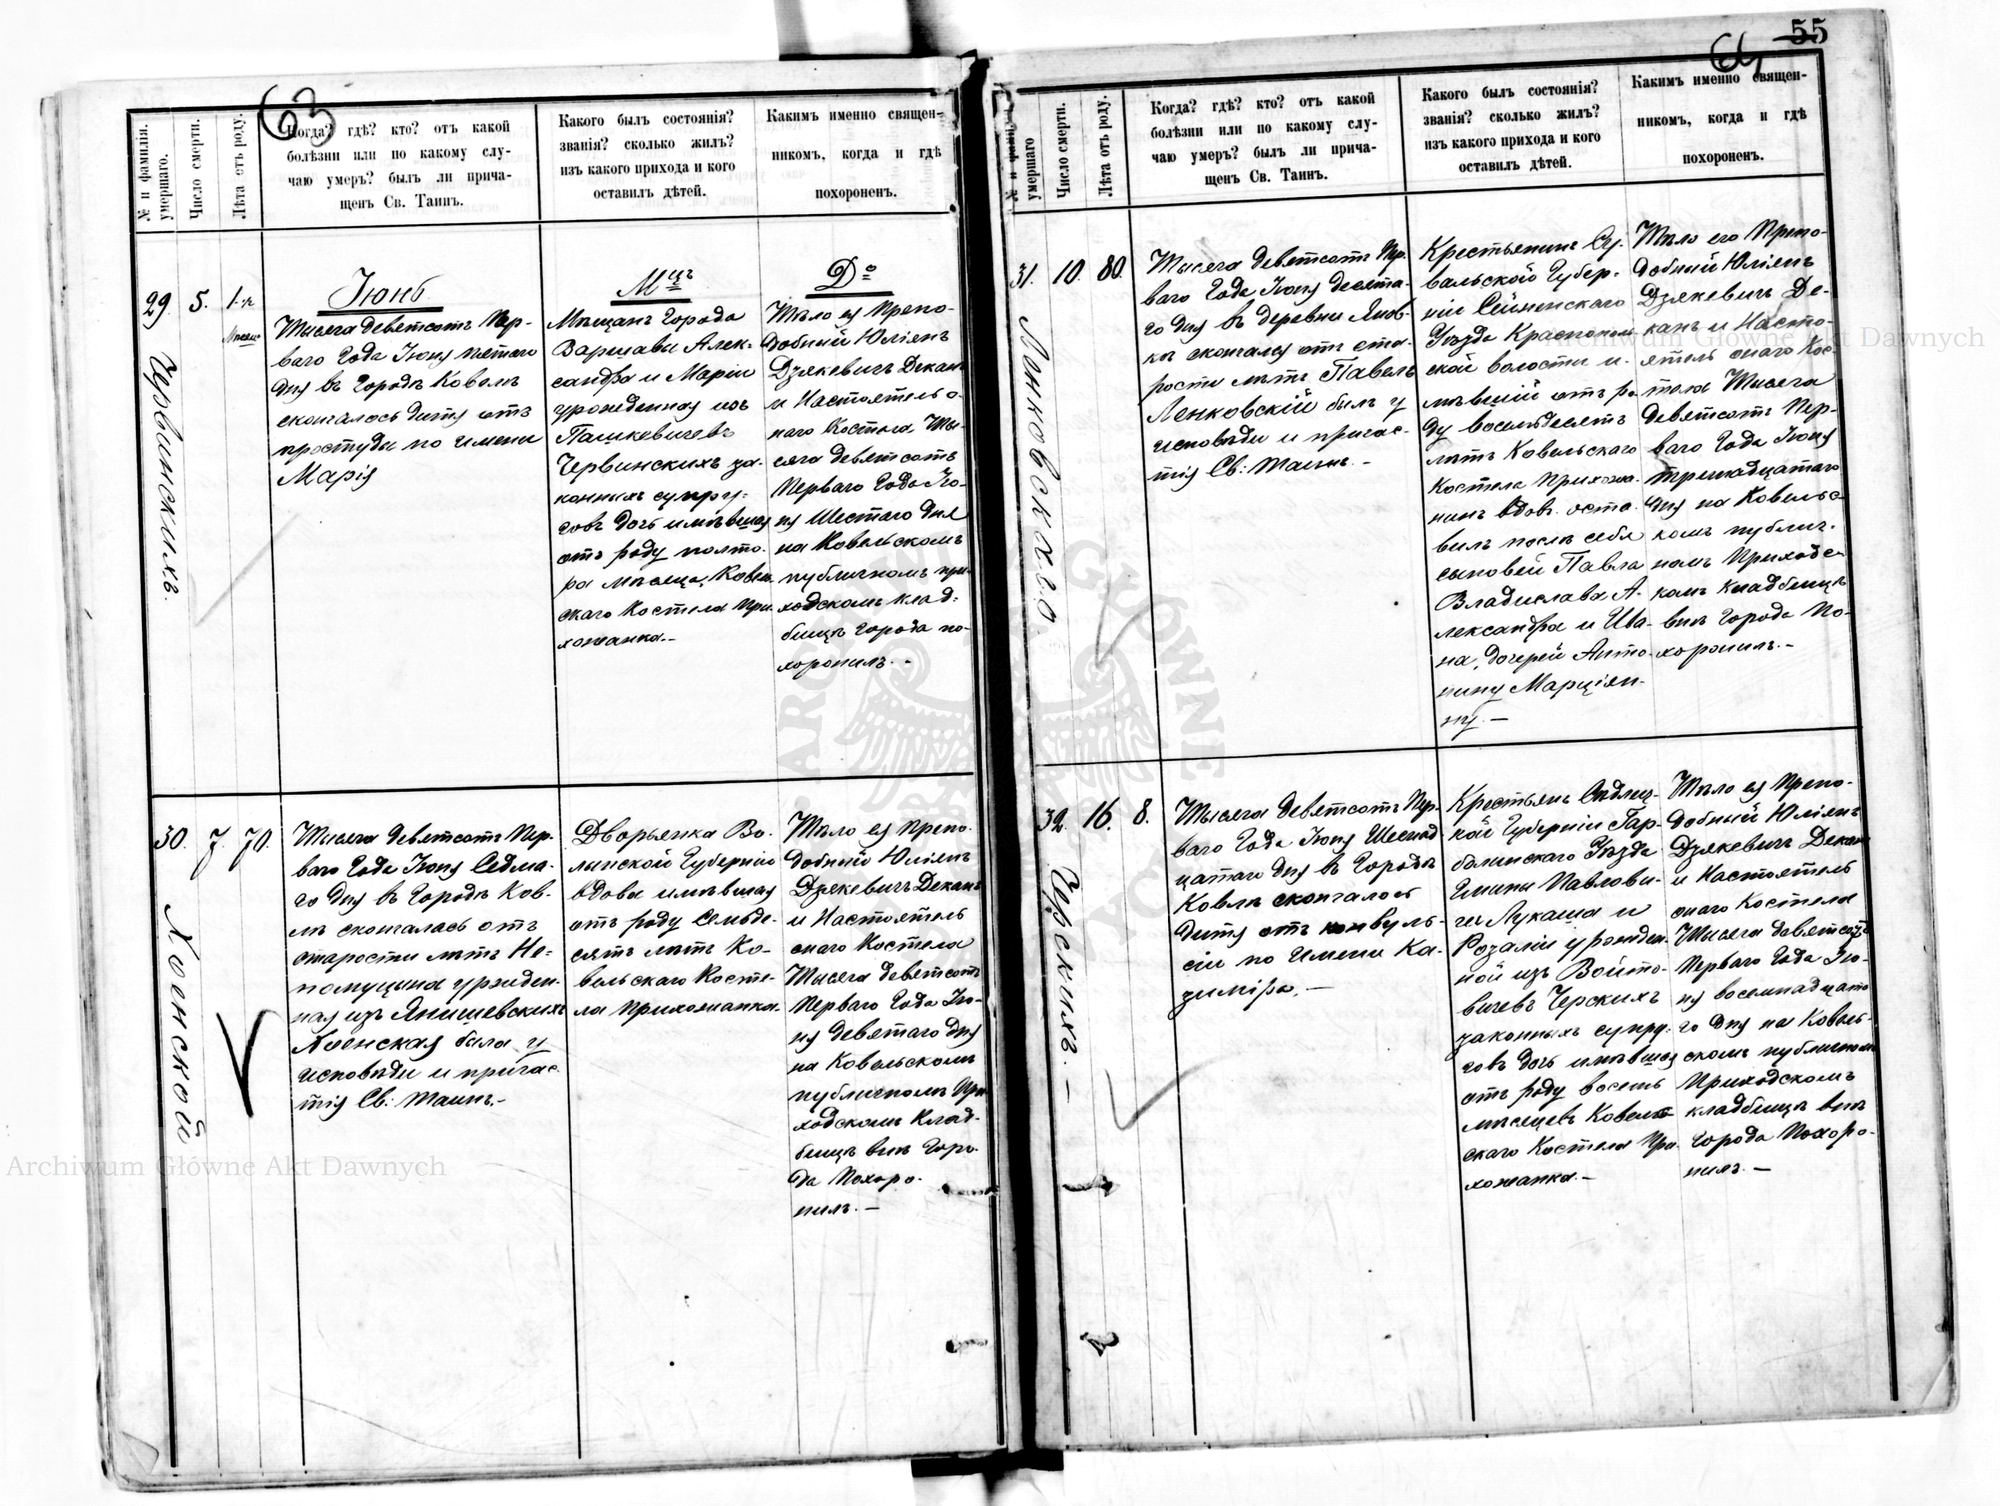 63
№ и фамилія умершаго.
Число смерти.
Лѣта отъ роду.
Когда? гдѣ? кто? отъ какой
болѣзни или по какому слу-
чаю умеръ? былъ ли прича-
щенъ Св. Таинъ.
Какого былъ состоянія?
званія? сколько жилъ?
изъ какого прихода и кого
оставилъ дѣтей.
Какимъ именно священ-
никомъ, когда и гдѣ
похороненъ.
29.
Червинскихъ.
5.
Іюнь
Тысяча девятсотъ Пер-
ваго Года Іюня пятаго
дня въ Городѣ Ковелѣ
скончалось дитя отъ
простуды по имени
Марія
М-цъ
Мѣщанъ Города
Варшавы Алек-
сандра и Маріи
урожденная изъ
Пашкевичевъ
Червинскихъ за-
конныхъ супру-
говъ дочь имѣвшая
отъ роду полто-
ра мѣсяца, Ковель-
скаго Костела при-
хожанка.-
До
Тѣло ея Препо-
добный Юліянъ
Дзякевичъ Деканъ
и Настоятель о-
наго Костела Ты-
сяча девятсотъ
Перваго Года Ію-
ня Шестаго дня
на Ковельскомъ
публичномъ при-
ходскомъ клад-
бищѣ Города по-
хоронилъ.-
30.
Хоенской
7.
70.
Тысяча девятсотъ Пер-
ваго Года Іюня Седма-
го дня въ Городѣ Ков-
лѣ скончалась отъ
старости лѣтъ Не-
помуцына урожден-
ная изъ Янишевскихъ
Хоенская была у
исповѣди и причас-
тія Св: Таинъ.-
Дворянка Во-
лынской Губерніи
вдова имѣвшая
отъ роду семьде-
сятъ лѣтъ Ко-
вельскаго Косте-
ла прихожанка.
Тѣло ея Препо-
добный Юліянъ
Дзякевичъ Деканъ
и Настоятель
онаго Костела
Тысяча девятсотъ
Перваго Года Ію-
ня девятаго дня
на Ковельскомъ
публичномъ При-
ходскомъ Клад-
бищѣ внѣ Горо-
да Похоро-
нилъ.-
55
64
№ и фамилія умершаго
Число смерти.
Лѣта отъ роду.
Когда? гдѣ? кто? отъ какой
болѣзни или по какому слу-
чаю умеръ? былъ ли прича-
щенъ Св. Таинъ.
Какого былъ состоянія?
званія? сколько жилъ?
изъ какого прихода и кого
оставилъ дѣтей.
Какимъ именно священ-
никомъ, когда и гдѣ
похороненъ.
31.
Лонковскаго
10.
80.
Тысяча девятсотъ Пер-
ваго Года Іюня десята-
го дня въ деревни
скончался отъ ста-
рости лѣтъ Павелъ
Ленковскій былъ у
исповѣди и причас-
тія Св: Таинъ.-
Крестьянинъ Су-
вальской Губер-
ніи Сейненскаго
Уѣзда Краснополь-
ской волости и-
мѣвшій отъ ро-
ду восемьдесятъ
лѣтъ Ковельскаго
Костела прихожа-
нинъ вдов. оста-
вилъ послѣ себя
сыновей Павла
Владислава А-
лександра и Ива-
на, дочерей Анто-
нину Марціян-
ну.-
Тѣло его Препо-
добный Юліянъ
Дзякевичъ Де-
канъ и Насто-
ятель онаго Кос-
тела Тысяча
девятсотъ Пер-
ваго Года Іюня
тринадцатаго
дня на Ковельс-
комъ публич-
номъ Приходс-
комъ Кладбищѣ
внѣ Города По-
хоронилъ.-
32.
Черскихъ.-
16.
8.
Тысяча девятсотъ Пер-
ваго Года Іюня Шеснад-
цатаго дня въ Городѣ
Ковлѣ скончалось
дитя отъ конвуль-
сіи по имени Ка-
зиміра.-
Крестьянъ Сѣдлец-
кой Губерніи Гар-
волинскаго Уѣзда
Гмины Павлови-
це Лукаша и
Розаліи урожден-
ной изъ Войто-
вичевъ Черскихъ
законныхъ супру-
говъ дочь имѣвшая
отъ роду восемь
мѣсяцевъ Ковель-
скаго Костела При-
хожанка.-
Тѣло ея Препо-
добный Юліянъ
Дзякевичъ Деканъ
и Настоятель
онаго Костела
Тысяча девятсотъ
Перваго Года Ію-
ня восемнадцата-
го дня на Ковель-
скомъ публичномъ
Приходскомъ
кладбищѣ внѣ
Города Похоро-
нилъ.-
Archiwum Główne Akt Dawnych
Archiwum Główne Akt Dawnych